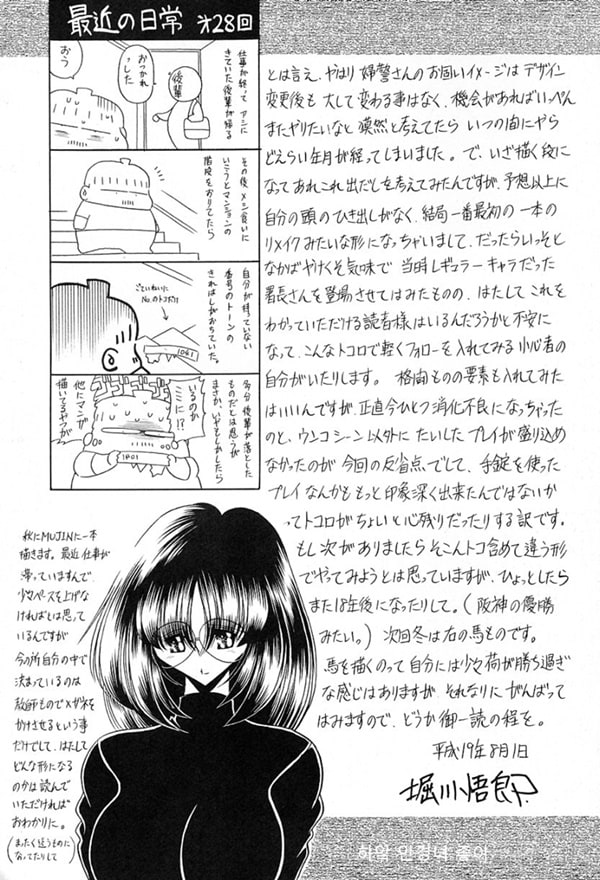 最近の日常 オ28回
仕事が終って アシに
きていた後輩が帰る
後輩
おつかれ
っした
おう
その後 メシ食いに
いこうとマンションの
階段をおりてたら
自分が持っていない
番号のトーンの
きれはしがおちていた。
ごていねいに
No.のトコだけ
1061
多分後輩が落とした
ものだとは思うが
まさか、いやもしかしたら
いるのか
ココに!?
他にマンガ
描いてるやつが
1061
とは言え、やはり 婦警さんのお固いイメージは デザイン
変更後も 大して変わる事はなく、機会があればいっぺん
またやりたいなと 漠然と考えてたら いつの間にやら
どえらい年月が経ってしまいました。で、いざ描く段に
なってあれこれ出だしを考えてみたんですが、予想以上に
自分の頭のひき出しがなく、結局一番最初の一本の
リメイクみたいな形になっちゃいまして、だったらいっそと
なかばやけくそ気味で 当時レギュラーキャラだった
署長さんを登場させてはみたものの、はたして これを
わかっていただける読者様はいるんだろうかと不安に
なって、こんなトコロで軽くフォローを入れてみる小心者の
自分がいたりします。 格闘ものの要素も入れてみた
はいいんですが、正直今ひとつ消化不良になっちゃった
のと、ウンコシーン以外に たいしたプレイが盛り込め
なかったのが 今回の反省点でして、手錠を使った
プレイなんかももっと印象深く出来たんではないか
ってトコロがちょいと心残りだったりする訳です。
もし次がありましたらそこんトコ含めて違う形
でやってみようとは思っていますが、ひょっとしたら
また18年後になったりして。(阪神の優勝
みたい。) 次回冬は右の馬ものです。
馬を描くのって自分には少々荷が勝ち過ぎ
な感じはありますが、それなりにがんばって
はみますので、どうか御一読の程を。
平成19年8月1日
堀川悟郎
秋にMUJINに一本
描きます。最近仕事が
滞っていますんで、
少々ペースを上げな
ければとは思って
いるんですが
今の所自分の中で
決まっているのは
教師ものでメガネを
かけさせるという事
だけでして、はたして
どんな形になる
のかは読んで
いただければ
おわかりに。
(まったく違うものに
なってたりして)
하악 안경녀 좋아